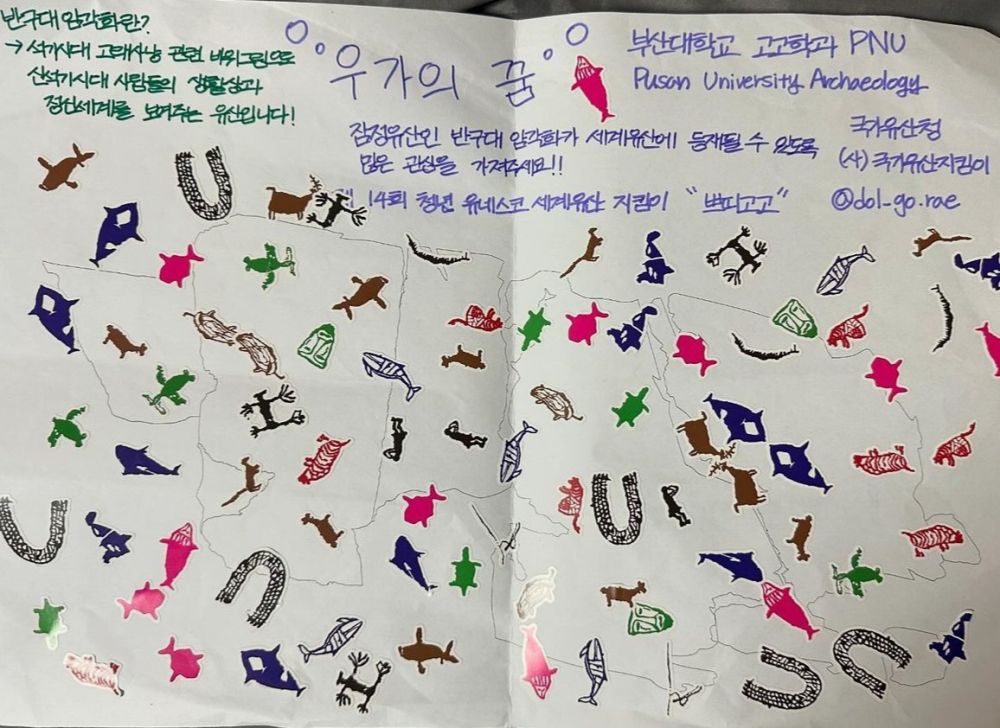 반구대 암각화란?
→ 석기시대 고래사냥 관련 바위그림으로
신석기시대 사람들의 생활상과
정신세계를 보여주는 유산입니다!
우가의 꿈
부산대학교 고고학과 PNU
Pusan University Archaeology
잠정유산인 반구대 암각화가 세계유산에 등재될 수 있도록
많은 관심을 가져주세요!!
국가유산청
(사)국가유산지킴이
제 14회 청년 유네스코 세계유산 지킴이 "쁘띠고고"
@dol-go.rae